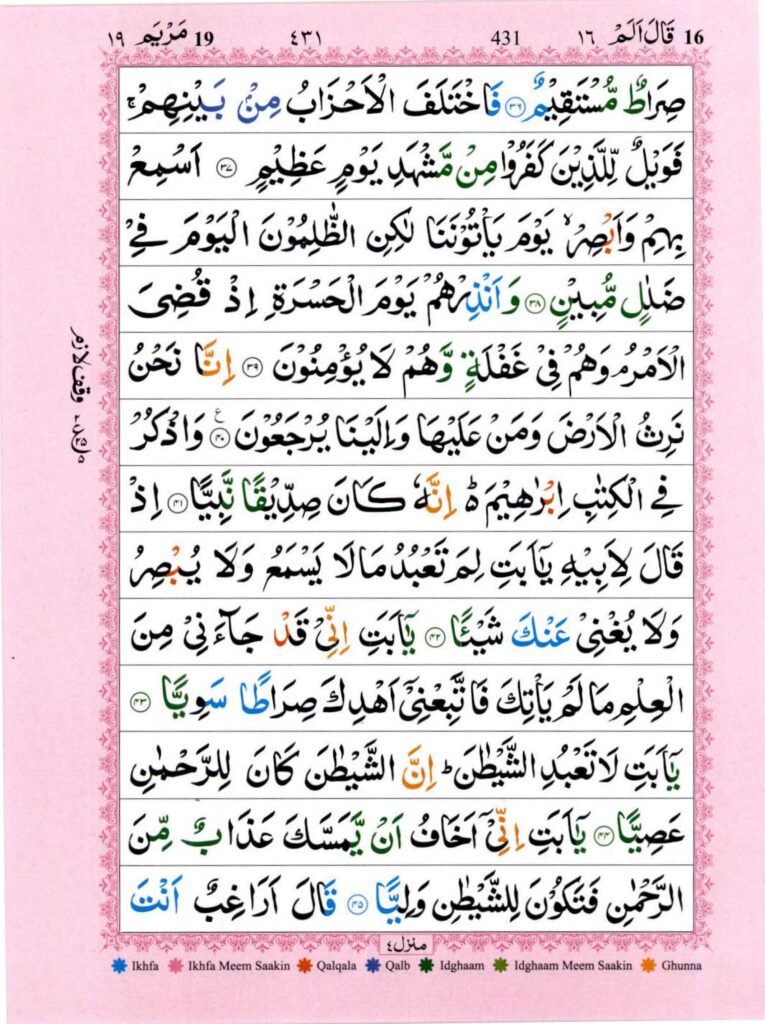 16 قَالَ اَلَمْ ١٦ 431 ٤٣١ 19 مَرْيَم ١٩
صِرَاطٌ مُّسْتَقِيْمٌ ﴿۳۶﴾ فَاخْتَلَفَ الْاَحْزَابُ مِنْۢ بَيْنِهِمْ ۚ
فَوَيْلٌ لِّلَّذِيْنَ كَفَرُوْا مِنْ مَّشْهَدِ يَوْمٍ عَظِيْمٍ ﴿۳۷﴾ اَسْمِعْ
بِهِمْ وَاَبْصِرْ ۙ يَوْمَ يَاْتُوْنَنَا لٰكِنِ الظّٰلِمُوْنَ الْيَوْمَ فِيْ
ضَلٰلٍ مُّبِيْنٍ ﴿۳۸﴾ وَاَنْذِرْهُمْ يَوْمَ الْحَسْرَةِ اِذْ قُضِىَ
الْاَمْرُ ۘ وَهُمْ فِيْ غَفْلَةٍ وَّهُمْ لَا يُؤْمِنُوْنَ ﴿۳۹﴾ اِنَّا نَحْنُ
نَرِثُ الْاَرْضَ وَمَنْ عَلَيْهَا وَاِلَيْنَا يُرْجَعُوْنَ ﴿۴۰﴾ ع وَاذْكُرْ
فِي الْكِتٰبِ اِبْرٰهِيْمَ ؕ اِنَّهٗ كَانَ صِدِّيْقًا نَّبِيًّا ﴿۴۱﴾ اِذْ
قَالَ لِاَبِيْهِ يٰۤاَبَتِ لِمَ تَعْبُدُ مَا لَا يَسْمَعُ وَلَا يُبْصِرُ
وَلَا يُغْنِيْ عَنْكَ شَيْئًا ﴿۴۲﴾ يٰۤاَبَتِ اِنِّيْ قَدْ جَآءَنِيْ مِنَ
الْعِلْمِ مَا لَمْ يَاْتِكَ فَاتَّبِعْنِيْۤ اَهْدِكَ صِرَاطًا سَوِيًّا ﴿۴۳﴾
يٰۤاَبَتِ لَا تَعْبُدِ الشَّيْطٰنَ ؕ اِنَّ الشَّيْطٰنَ كَانَ لِلرَّحْمٰنِ
عَصِيًّا ﴿۴۴﴾ يٰۤاَبَتِ اِنِّيْۤ اَخَافُ اَنْ يَّمَسَّكَ عَذَابٌ مِّنَ
الرَّحْمٰنِ فَتَكُوْنَ لِلشَّيْطٰنِ وَلِيًّا ﴿۴۵﴾ قَالَ اَرَاغِبٌ اَنْتَ
وقف لازم
منزل ٤
Ikhfa Ikhfa Meem Saakin Qalqala Qalb Idghaam Idghaam Meem Saakin Ghunna